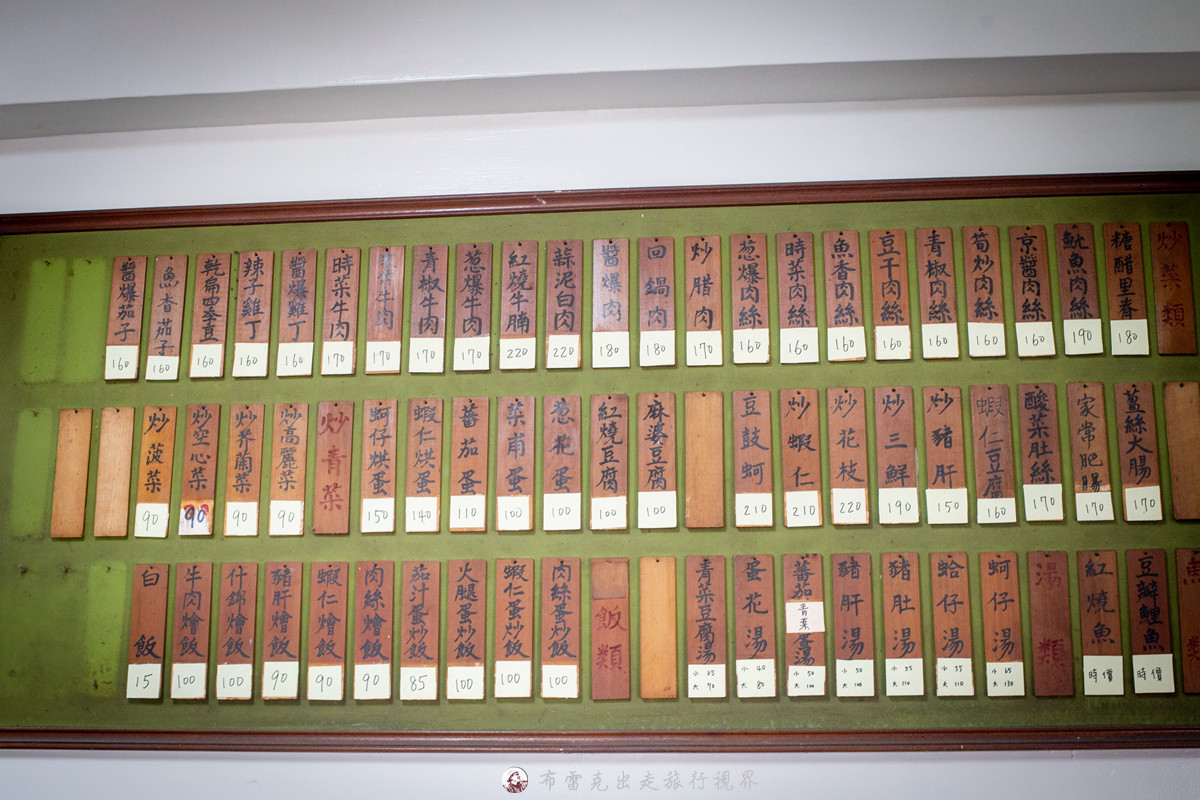 炒菜類
糖醋里脊 180
魷魚肉絲 190
京醬肉絲 160
筍炒肉絲 160
青椒肉絲 160
豆干肉絲 160
魚香肉絲 160
時菜肉絲 160
葱爆肉絲 160
炒腊肉 170
回鍋肉 180
醬爆肉 180
蒜泥白肉 220
紅燒牛腩 220
葱爆牛肉 170
青椒牛肉 170
牛肉 170
時菜牛肉 170
醬爆雞丁 160
辣子雞丁 160
乾扁四季豆 160
魚香茄子 160
醬爆茄子 160
薑絲大腸 170
家常肥腸 170
酸菜肚絲 170
蝦仁豆腐 160
炒豬肝 150
炒三鮮 190
炒花枝 220
炒蝦仁 210
豆鼓蚵 210
麻婆豆腐 100
紅燒豆腐 100
葱花蛋 100
菜甫蛋 100
蕃茄蛋 110
蝦仁烘蛋 140
蚵仔烘蛋 150
炒青菜
炒高麗菜 90
炒芥蘭菜 90
炒空心菜 90
炒菠菜 90
魚類
豆瓣鯉魚 時價
紅燒魚 時價
湯類
蚵仔湯 小65 大130
蛤仔湯 小55 大110
豬肚湯 小55 大110
豬肝湯 小50 大100
蕃茄青菜蛋湯 小50 大100
蛋花湯 小40 大80
青菜豆腐湯 小35 大70
飯類
肉絲蛋炒飯 100
蝦仁蛋炒飯 100
火腿蛋炒飯 100
茄汁蛋炒飯 85
肉絲燴飯 90
蝦仁燴飯 90
豬肝燴飯 90
什錦燴飯 100
牛肉燴飯 100
白飯 15
布雷克出走旅行視界